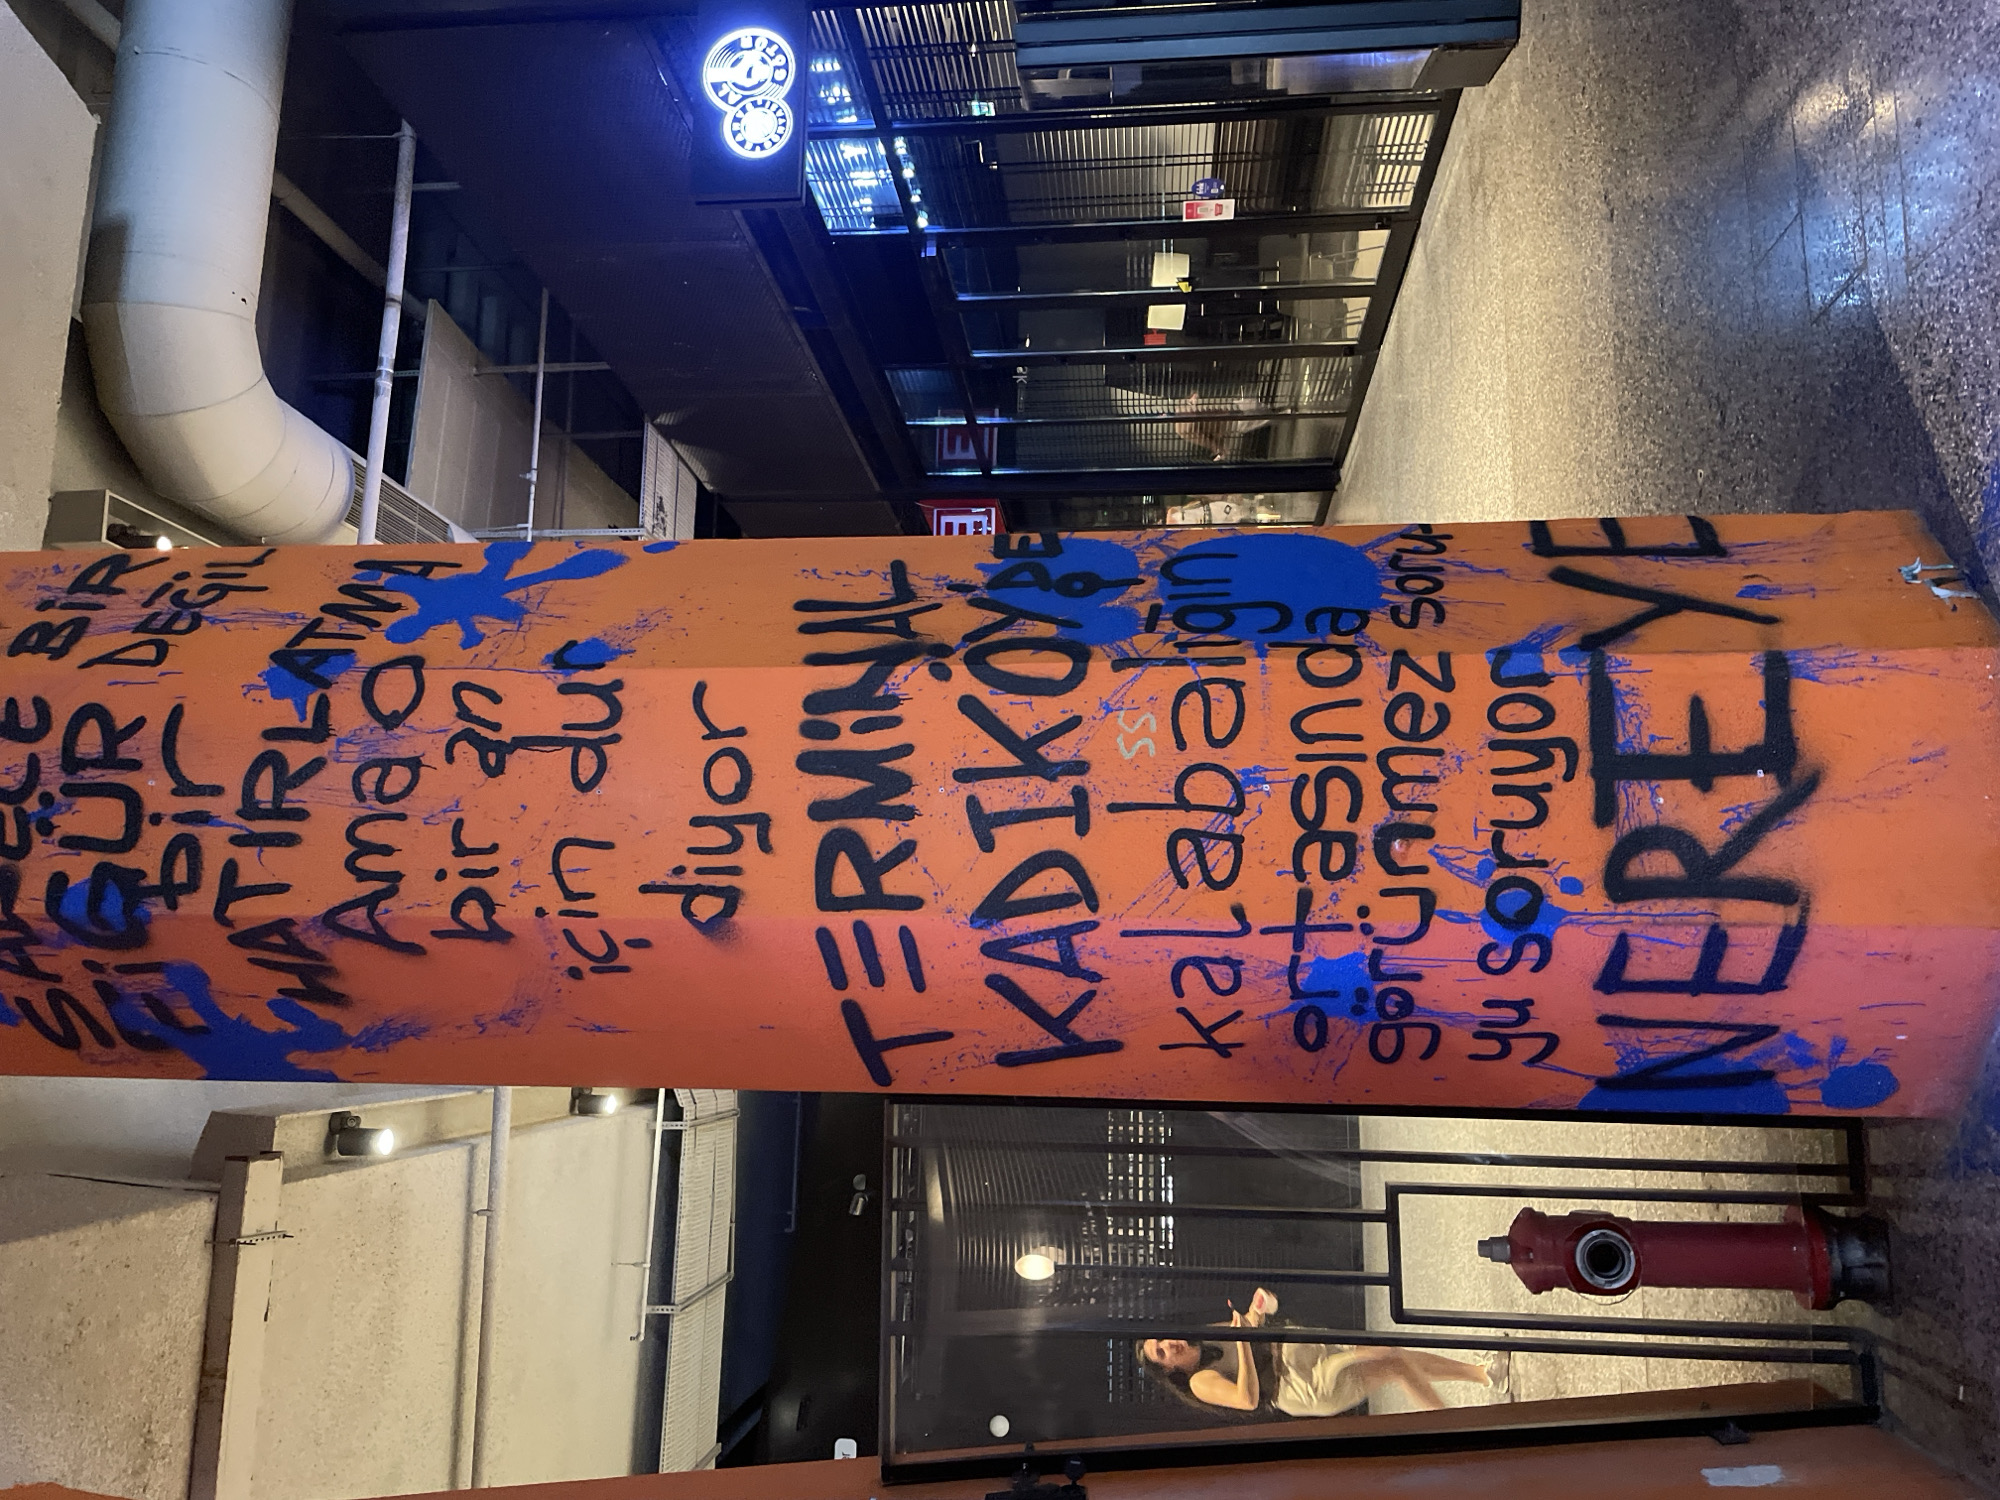 SADECE BİR
FİGÜR DEĞİL
bir
HATIRLATMA
Ama o
bir an
için dur
diyor
TERMİNAL
KADIKÖY'DE
kalabalığın
ortasında
görünmez soru
yu soruyor
NEREYE
SS